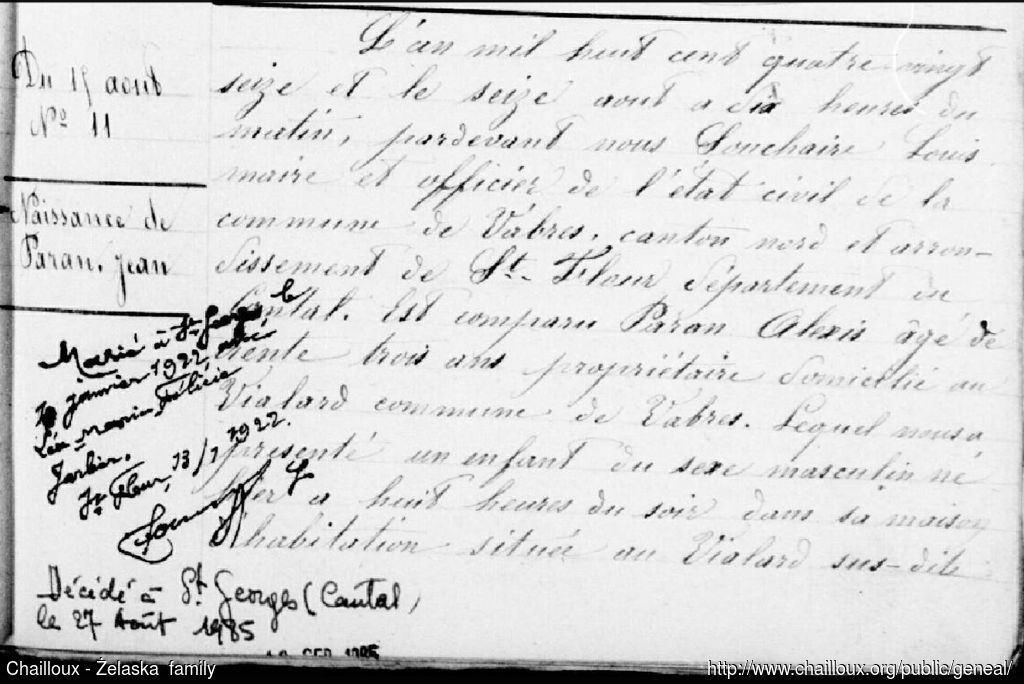 Du 15 aout
Nº 11
Naissance de
Paran, Jean
Marié à St Georges, le
janvier 1922 avec
Léa Maria Félicie
St Flour, 13/1 1922.
Décédé à St Georges (Cantal)
le 27 Août 1985
L'an mil huit cent quatre-vingt
seize et le seize aout a dix heures du
matin, pardevant nous Souchaire Louis
maire et officier de l'état civil de la
commune de Vabres, canton nord et arron-
dissement de St-Flour département du
Cantal. Est comparu Paran Alexis âgé de
trente trois ans propriétaire domicilié au
Vialard commune de Vabres. Lequel nous a
présenté un enfant du sexe masculin né
hier a huit heures du soir dans sa maison
d'habitation située au Vialard sus-dit
Chailloux - Żelaska family
http://www.chailloux.org/public/geneal/